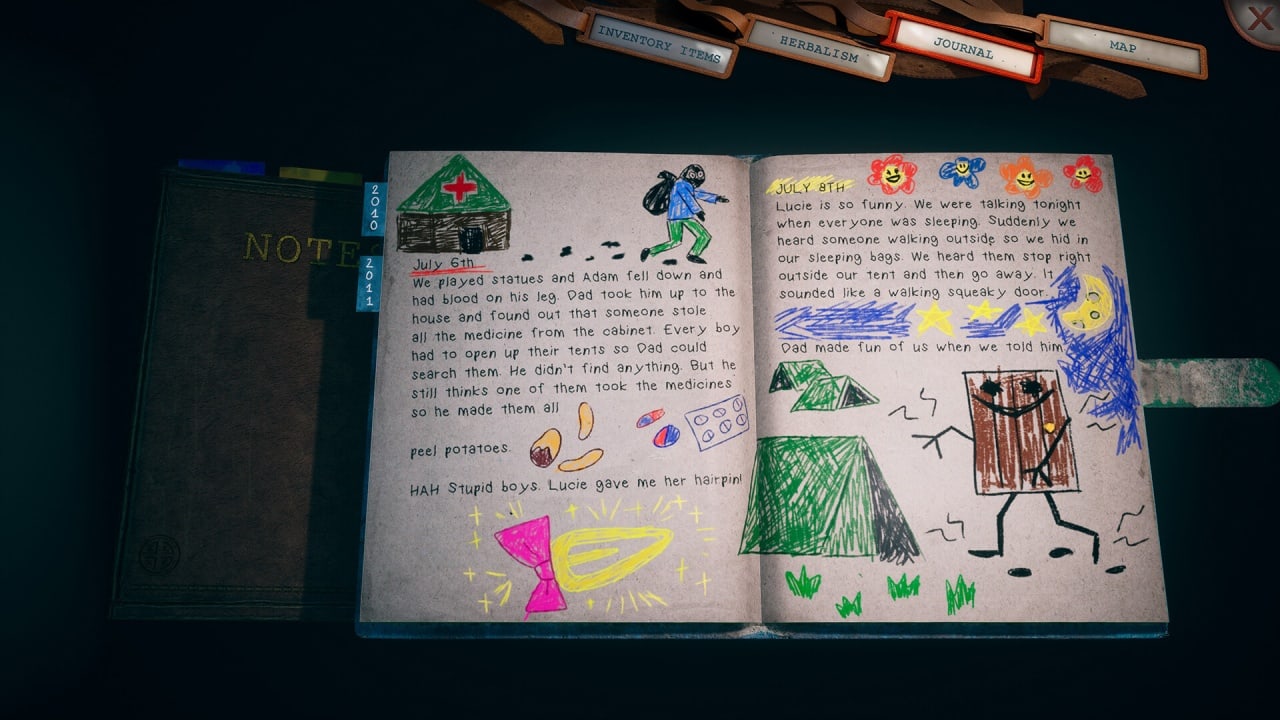 INVENTORY ITEMS
HERBALISM
JOURNAL
MAP
X
NOTE
2010
2011
July 6th
We played statues and Adam fell down and
had blood on his leg. Dad took him up to the
house and found out that someone stole
all the medicine from the cabinet. Every boy
had to open up their tents so Dad could
search them. He didn't find anything. But he
still thinks one of them took the medicines
so he made them all
peel potatoes.
HAH Stupid boys. Lucie gave me her hairpin!
JULY 8TH
Lucie is so funny. We were talking tonight
when everyone was sleeping. Suddenly we
heard someone walking outside so we hid in
our sleeping bags. We heard them stop right
outside our tent and then go away. It
sounded like a walking squeaky door.
Dad made fun of us when we told him